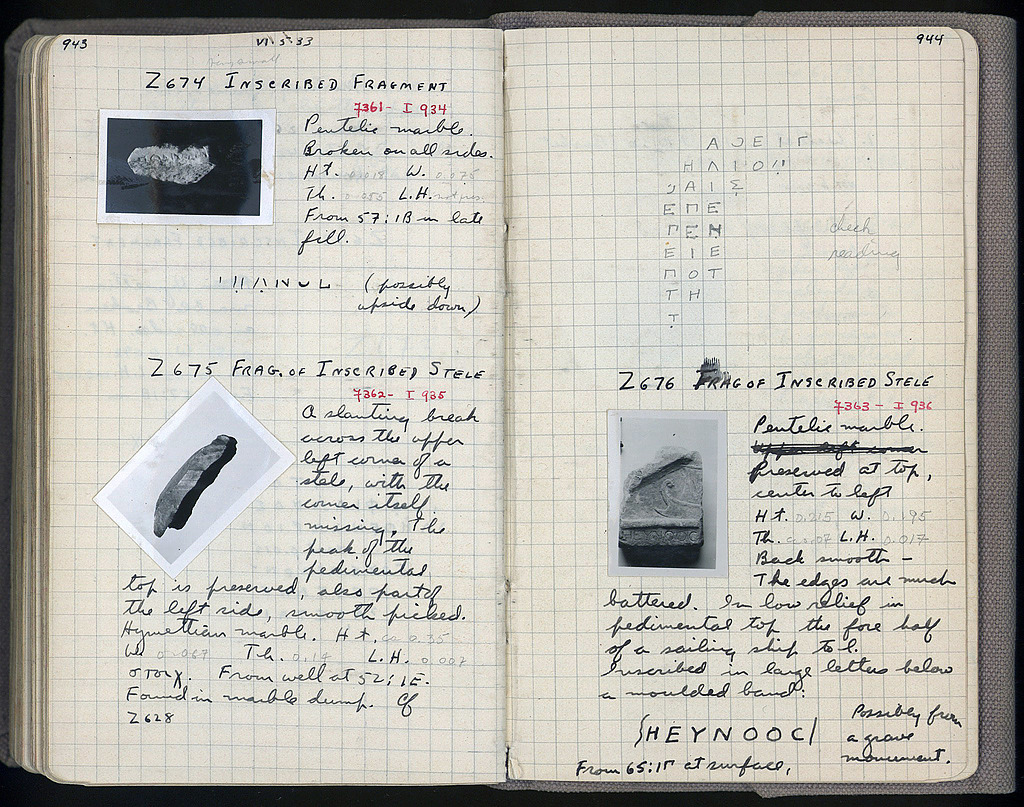 943
VI·5·33
very small
Z674 INSCRIBED FRAGMENT
7361 - I 934
Pentelic marble.
Broken on all sides.
Ht. 0.018 W. 0.075
Th. 0.055 L.H. not pres.
From 57:1B in late
fill.
(possibly
upside down)
Z675 FRAG. OF INSCRIBED STELE
7362 - I 935
A slanting break
across the upper
left corner of a
stele, with the
corner itself
missing, the
peak of the
pedimental
top is preserved, also part of
the left side, smooth picked.
Hymettian marble. Ht. ca 0.35
W. 0.087 Th. 0.14 L.H. 0.007
στοιχ. From well at 52:1E.
Found in marble dump. Cf
Z628
944
ΕΠΕ
ΠΕΝ
ΕΙΕ
ΠΟΤ
ΤΗ
Τ
check
reading
Z676 FRAG OF INSCRIBED STELE
7363 - I 936
Pentelic marble.
Preserved at top,
center to left
Ht. 0.215 W. 0.195
Th. ca 0.07 L.H. 0.017
Back smooth -
The edges are much
battered. In low relief in
pedimental top the fore half
of a sailing ship to l.
Inscribed in large letters below
a moulded band:
ΗΕΥΝΟΟC
Possibly from
a grave
monument.
From 65:1Γ at surface.